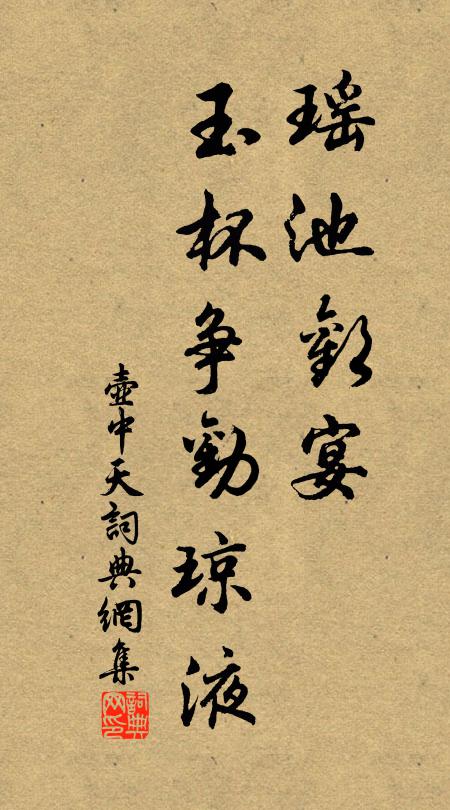 瑶池歡宴
玉杯争勸琼液
壺中天詞典網集
詞典网印